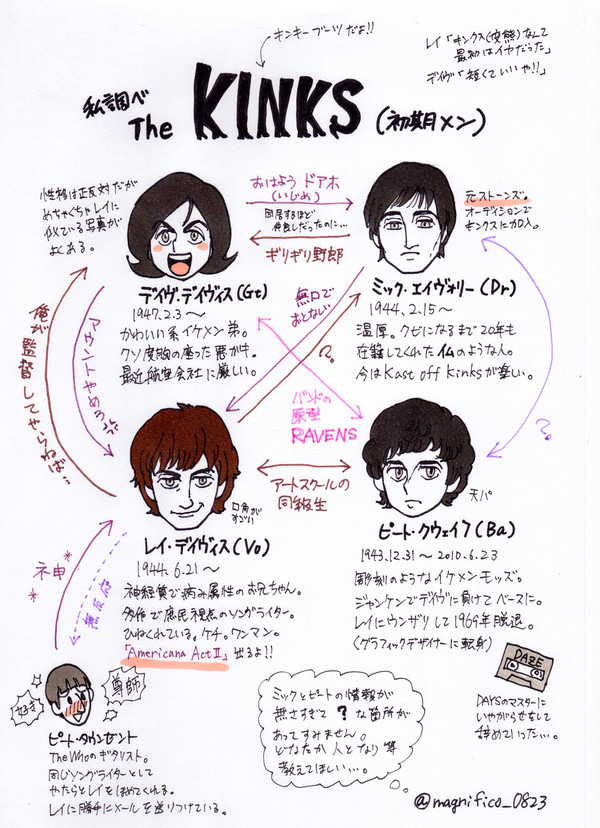 キンキーブーツだよ!!
レイ「キンクス(変態)なんて
最初はイヤだった」
デイヴ「短くていいや!!」
私調べ
The KINKS (初期メン)
性格は正反対だが
めちゃくちゃレイに
似ている写真が
よくある。
おはよう ドアホ
(いじめ)
同居するほど
仲良しだったのに…
ギリギリ野郎
元ストーンズ。
オーディションで
キンクスに加入。
デイヴ・デイヴィス(Gt)
1947.2.3〜
かわいい系イケメン弟。
クソ度胸の座った悪ガキ。
最近航空会社に厳しい。
無口で
おとなしい
?
ミック・エイヴォリー(Dr)
1944.2.15〜
温厚。クビになるまで20年も
在籍してくれた仏のような人。
今はKast off Kinksが楽しい。
俺が監督してやらねば…
マウントやめろ
バンドの
原型
RAVENS
?
アートスクールの
同級生
口角が
すごい
天パ
レイ・デイヴィス(Vo)
1944.6.21〜
神経質で病み属性のお兄ちゃん。
多作で庶民視点のソングライター。
ひねくれている。ケチ。ワンマン。
「Americana Act Ⅱ」出るよ!!
ピート・クウェイフ(Ba)
1943.12.31〜2010.6.23
彫刻のようなイケメンモッズ。
ジャンケンでデイヴに負けてベースに。
レイにウンザリして1969年脱退。
(グラフィックデザイナーに転身)
ネ申
無反応
好き
尊師
ピート・タウンゼント
The Whoのギタリスト。
同じソングライターとして
やたらとレイをほめてくれる。
レイに勝手にメールを送りつけている。
ミックとピートの情報が
無さすぎて ? な箇所が
あってすみません。
どなたか人となり等
教えてほしい…。
DAZE
DAYSのマスターに
いやがらせをして
辞めていった…。
@magnifico_0823